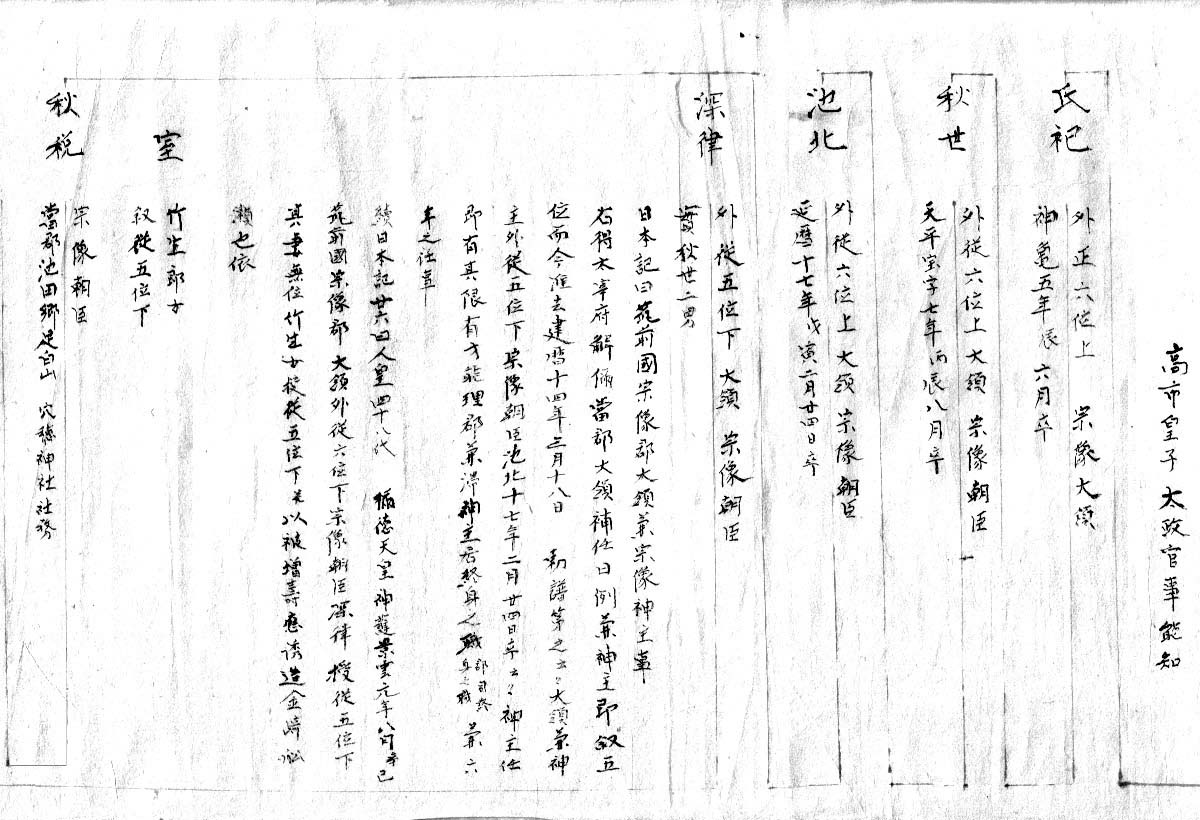 高市皇子 太政官事能知
氏祀
外正六位上 宗像大領
神亀五年辰 六月卒
秋世
外従六位上 大領 宗像朝臣
天平宝字七年丙辰八月卒
池北
外従六位上 大領 宗像朝臣
延暦十七年戊寅二月廿四日卒
深律
外従五位下 大領 宗像朝臣
實秋世二男
日本記曰筑前國宗像郡大領兼宗像神主事
右得太宰府解偁當郡大領補任日例兼神主即叙五
位而今准去建暦十四年三月十八日 勅譜第之云々大領兼神
主外従五位下宗像朝臣池北十七年二月廿四日卒云々神主任
即有其限有才能理郡兼帯神主居終身之職郡司終身之職兼六
年之任
續日本記廿六曰人皇四十八代 称徳天皇神護景雲元年八月辛巳
筑前國宗像郡大領外従六位下宗像朝臣深律授従五位下
其妻無位竹生女授従五位下 以被增壽應誘造金崎舩
瀬也依
室
竹生郎女
叙従五位下
秋税
宗像朝臣
當郡池田郷足白山 穴穂神社社務